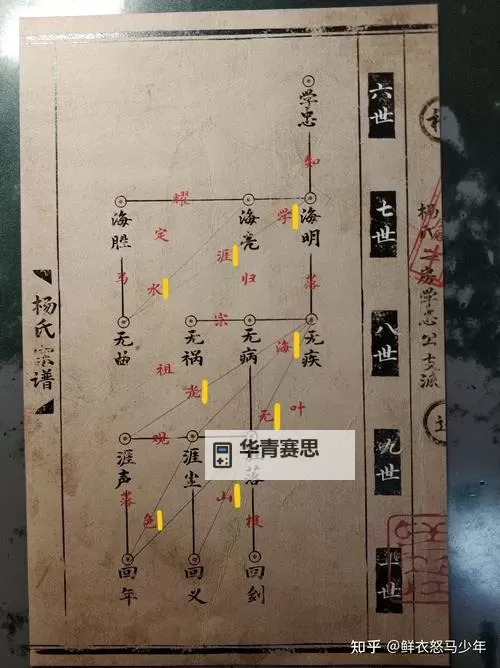 六世
学忠
知
杨氏二房学忠公支派
七世
海明
海亮
海胜
耀
学
定
涯
归
水
落
杨氏宗谱
八世
无疾
无病
无祸
宗
海
祖
龙
叶
无
九世
涯尘
涯声
观
落
山
根
回剑
回义
回年
华青赛思
知乎 @鲜衣怒马少年